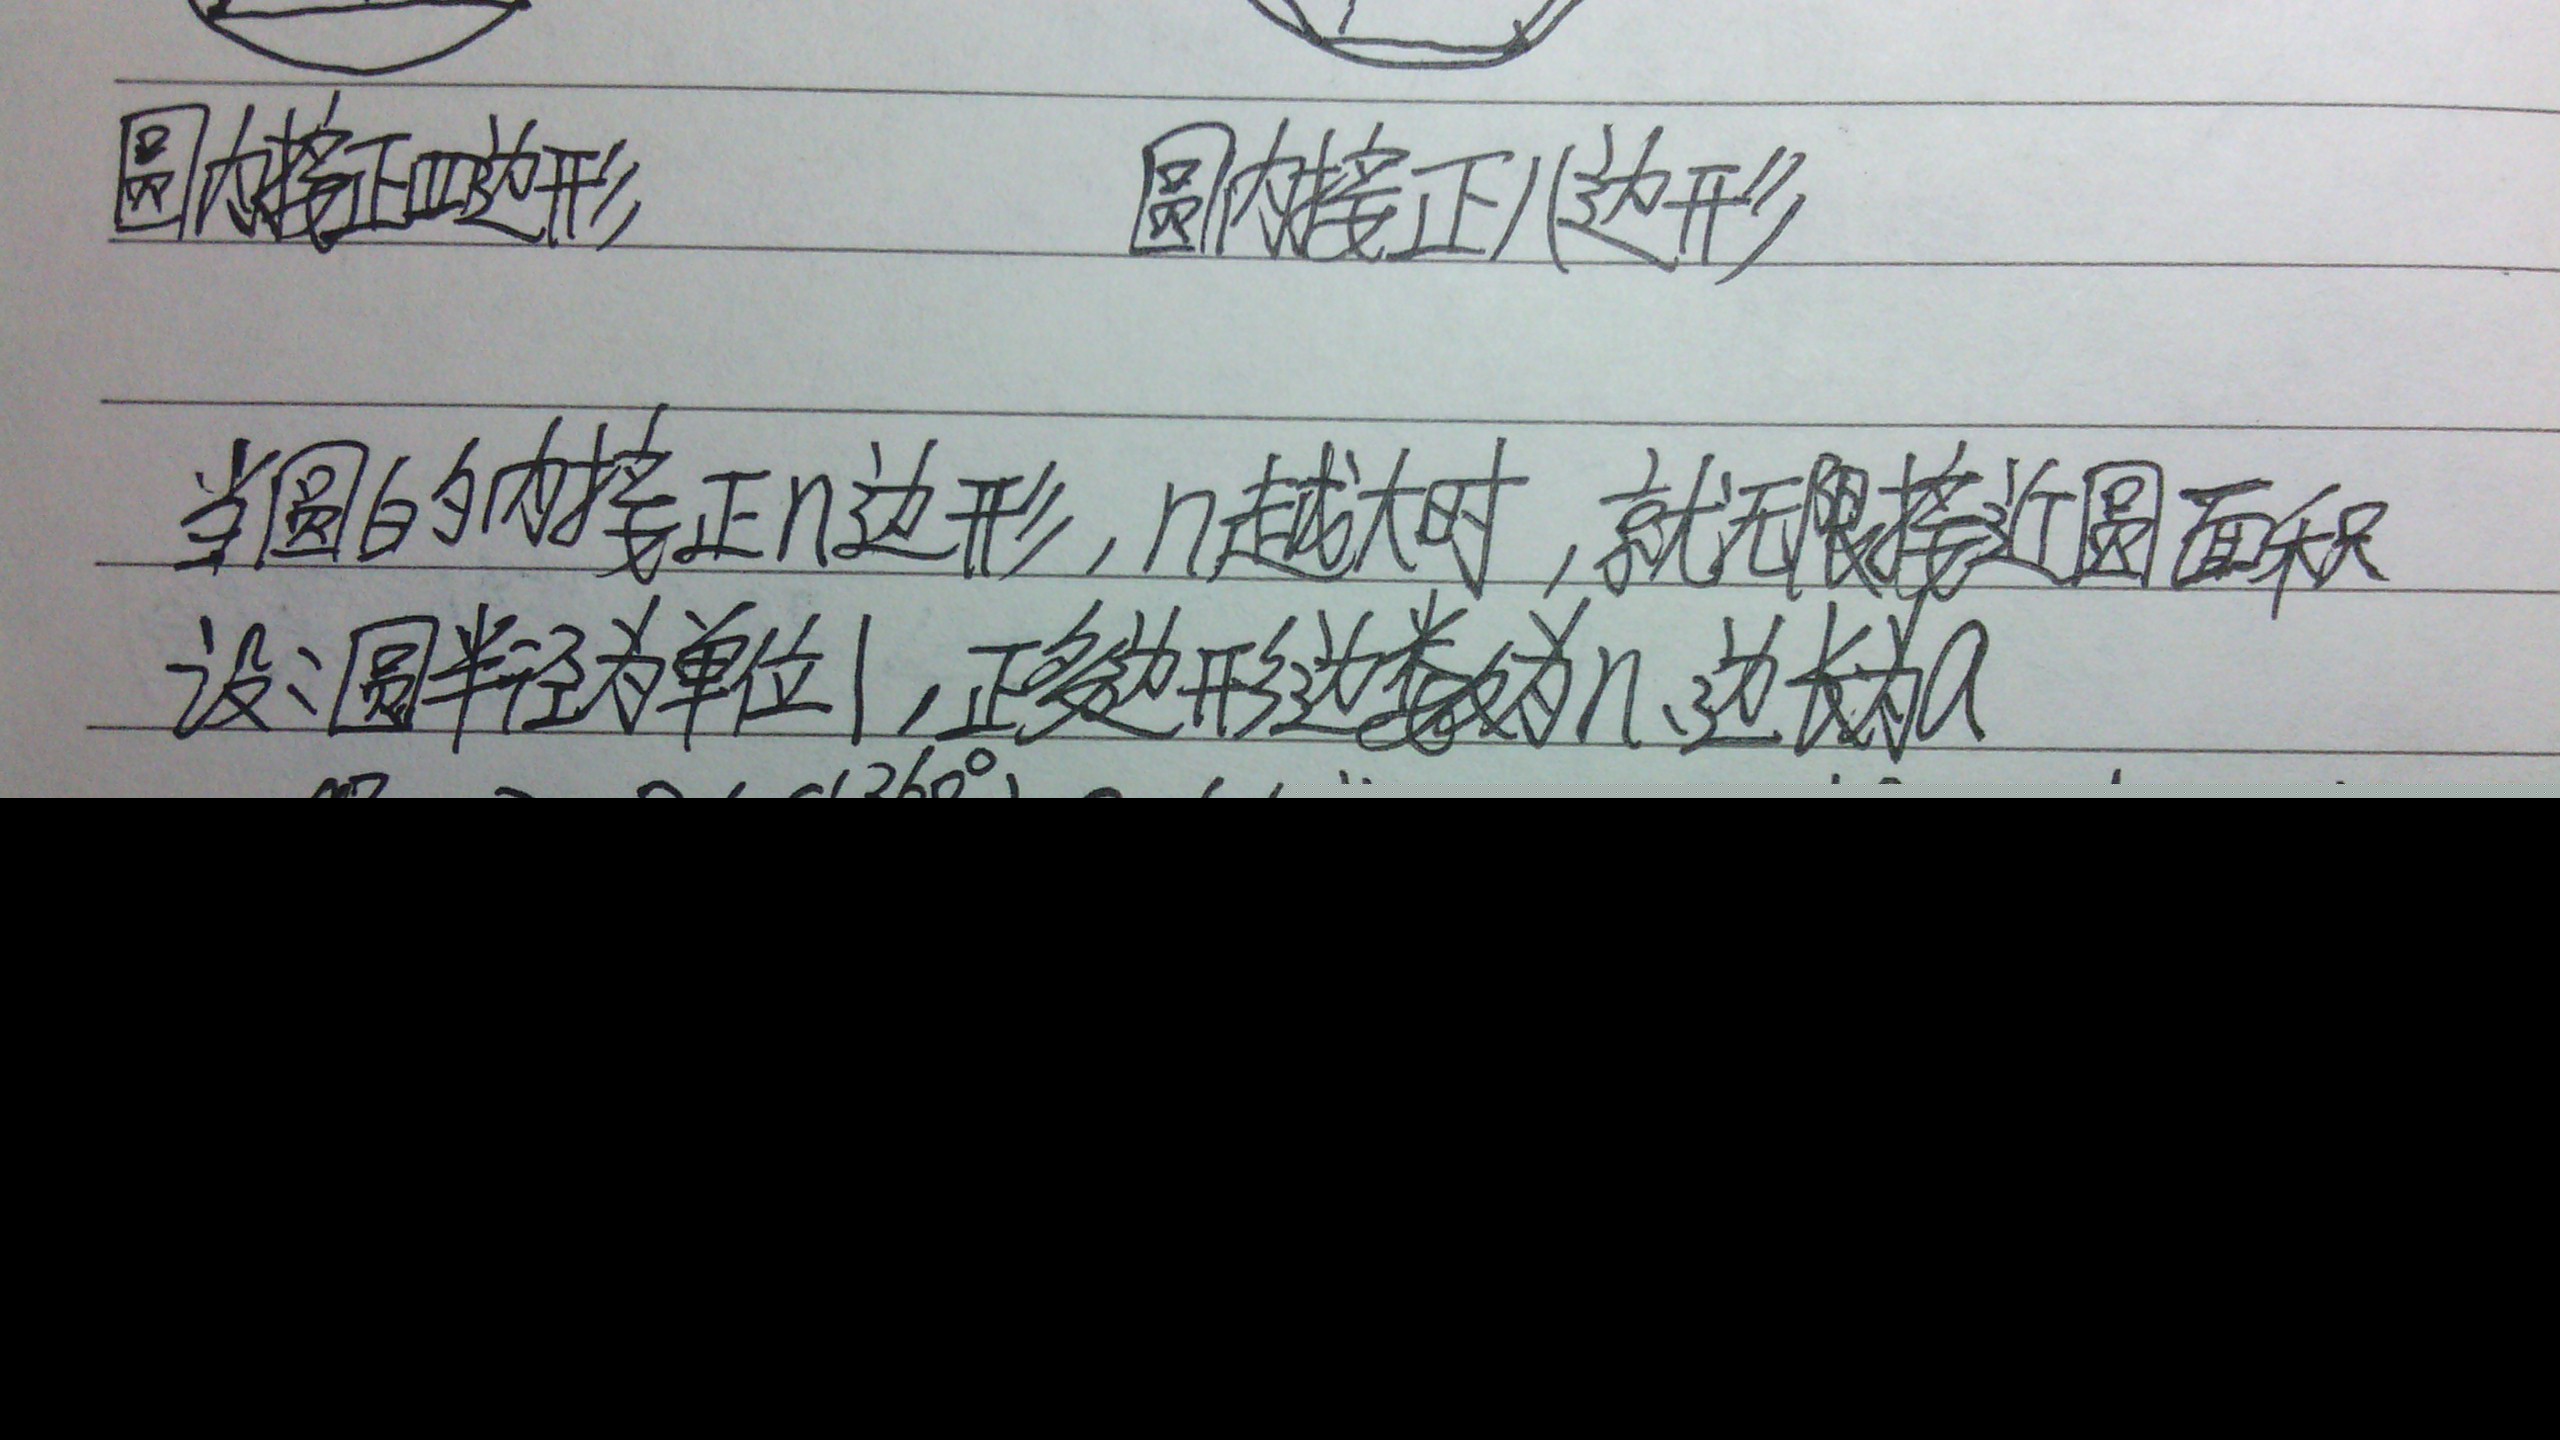 圆内接正四边形 圆内接正八边形
当圆的内接正n边形,n越大时,就无限接近圆面积
设:圆半径为单位1,正多边形边数为n、边长为a